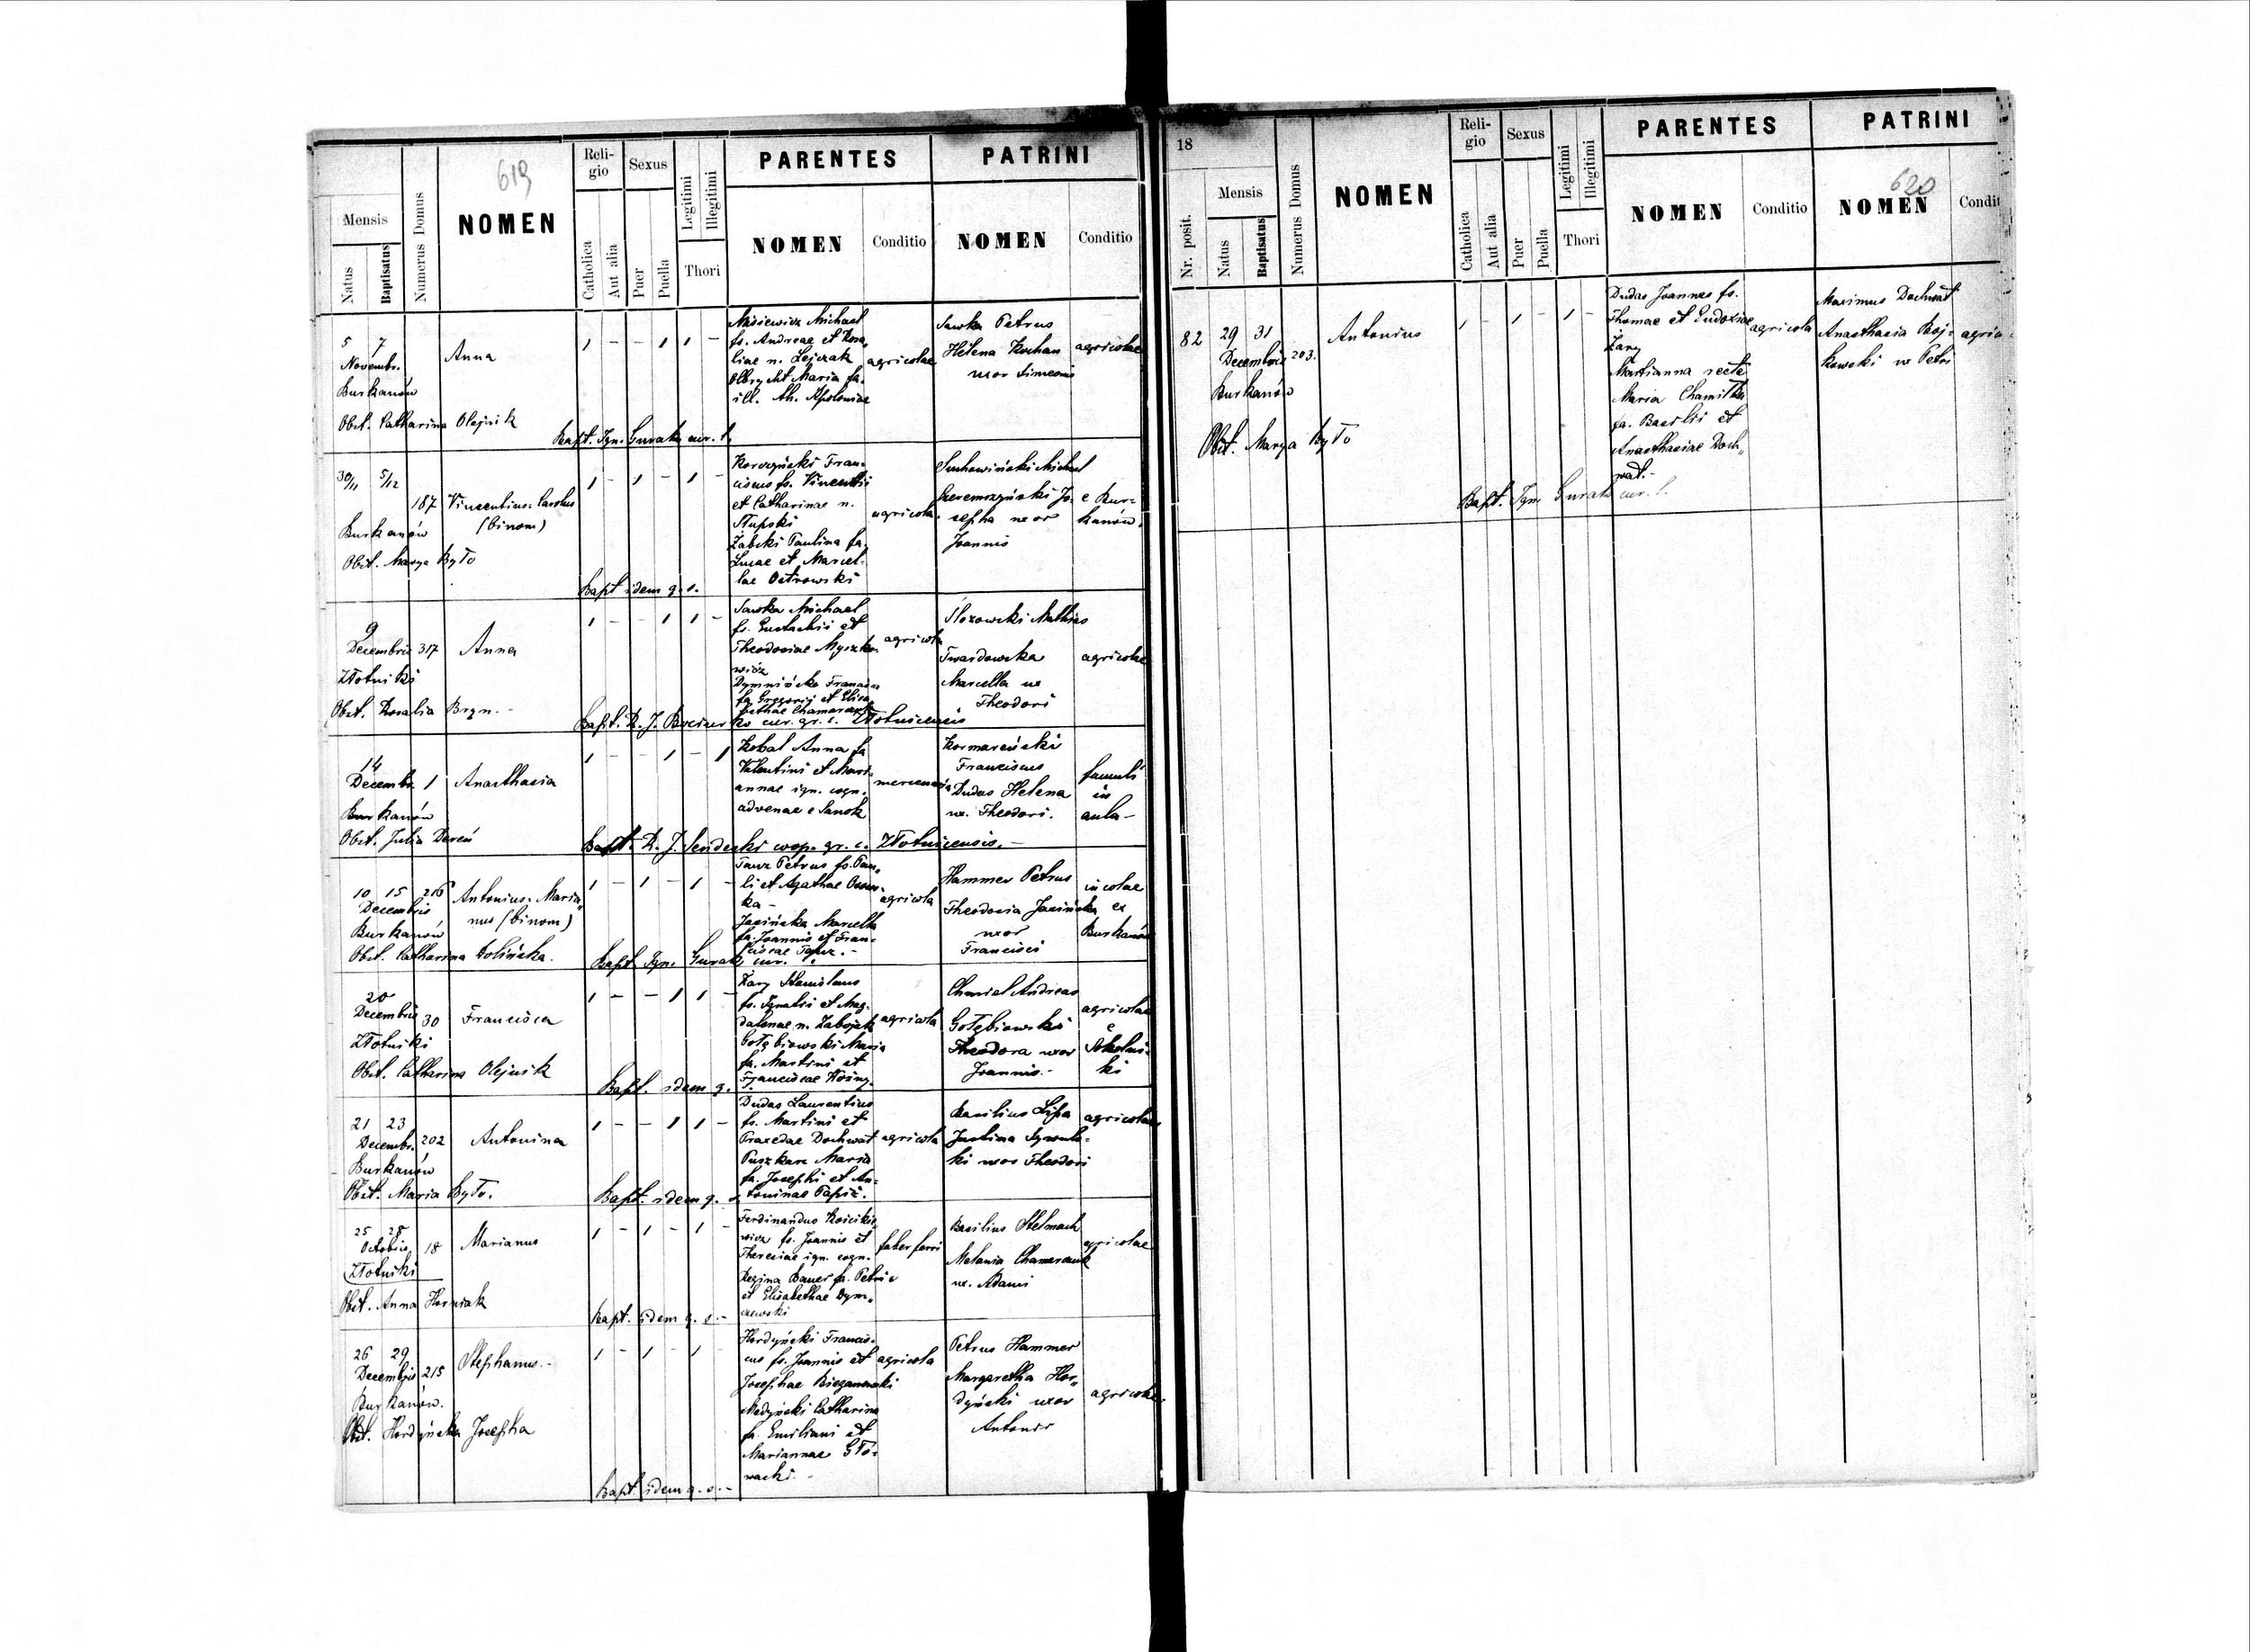 619
Mensis
Natus
Baptisatus
Numerus Domus
NOMEN
Religio
Catholica
Aut alia
Sexus
Puer
Puella
Legitimi
Illegitimi
Thori
PARENTES
NOMEN
Conditio
PATRINI
NOMEN
Conditio
5 7
Novembr.
Burkanów
Anna
1 - - 1 1 -
Michael
fs. Andreae et Rosa„
liae n. Lejczak
Olbrycht Maria fa.
ill. th. Apoloniae
agricolae
Sawka Petrus
Helena Kochan
uxor Simeonis
agricolae
Obst. Catharina Olejnik
Bapt. Ign. Gurak cur. l.
30/11 5/12
187
Burkanów
Vincentius-Carolus
(binom)
1 - 1 - 1 -
Korczyński Fran-
ciscus fs. Vincentii
et Catharinae n.
Słupski
Żabski Paulina fa.
Lucae et Marcel-
lae Ostrowski
agricola
Suchowiński Michael
Szeremszyński Jo-
sepha uxor
Joannis
e Bur-
kanów.
Obst. Marya Byto
Bapt idem q. s.
9
Decembris 317
Złotniki
Anna
1 - - 1 1 -
Sawka Michael
fs. Eustachii et
Theodosiae Myszko-
wicz
Dymnicka Francisca
fa. Gregorij et Elisa
bethae Chamarczuk
agricola
Słozowski Mathias
Twardowska
Marcella ux
Theodori
agricolae
Obst. Rosalia Bryn.-
Bapt. R. J. cur. gr. c. Złotnicensis
14
Decembr. 1
Burkanów
Anasthasia
1 - - 1 - 1
Kobal Anna fa
Valentini et Mari-
annae ign. cogn.
advenae e Sanok
Franciscus
Dudas Helena
ux. Theodori.
famuli
in
aula-
Obst. Julia Dereń
Bapt. R. J. Senderski coop. gr. c. Złotnicensis.-
10 15 216
Decembris
Burkanów
Antonius-Maria„
nus (binom)
1 - 1 - 1 -
Petrus fs. Pau„
li et Agathae
ka-
Jasińska Marcella
fa. Joannis et Fran-
ciscae
agricola
Hammer Petrus
Theodosia Jasińska
uxor
Francisci
incolae
ex
Burkanów
Obst. Catharina Solińska.
Bapt Ign. Gurak cur.
20
Decembris 30
Złotniki
Francisca
1 - - 1 1 -
Żary Stanislaus
fs. Ignatii et Mag-
dalenae n. Zabojak
Gołębiowski Maria
fa. Martini et
Franciscae
agricola
Chmiel Andreas
Gołębiowski
Theodora uxor
Joannis.-
agricolae
e
Sokolni-
ki
Obst. Catharina Olejnik
Bapt. idem q.
21 23
Decembr. 202
Burkanów
Antonina
1 - - 1 1 -
Dudas Laurentius
fs. Martini et
Praxedae Dochwat
Puszkarz Maria
fa. Josephi et An-
toninae Papiż.
agricola
Basilius Lipa
Justina
ki uxor Theodori
agricolae
Obst. Maria Byto.
Bapt. idem q. s.
25 28
Octobris 18
Złotniki
Marianus
1 - 1 - 1 -
Ferdinandus Kościkie„
wicz fs. Joannis et
Theresiae ign. cogn.
Regina Bauer fa. Petri
et Elisabethae Dym„
czewski
faber ferri
Basilius Stelmach
Melania Chamarczuk
ux. Adami
agricolae
Obst. Anna Horniak
Bapt. idem q. s.-
26 29
Decembris 215
Burkanów.
Stephanus.-
1 - 1 - 1 -
Hordyński Francis-
cus fs. Joannis et
Josephae Bieganowski
Medyński Catharina
fa. Emiliani et
Mariannae Gło-
wacki.-
agricola
Petrus Hammer
Margaretha Hor„
dyński uxor
Antonii
agricolae
Obst. Hordyńska Josepha
Bapt. idem q. s.-
18
620
Nr. posit.
Mensis
Natus
Baptisatus
Numerus Domus
NOMEN
Religio
Catholica
Aut alia
Sexus
Puer
Puella
Legitimi
Illegitimi
Thori
PARENTES
NOMEN
Conditio
PATRINI
NOMEN
Condit
82 29 31
Decembris 203.
Burkanów
Antonius
1 - 1 - 1 -
Dudas Joannes fs.
Thomae et Eudoxiae
Żary
Martianna recte
Maria
fa. Basilii et
Anasthasiae Doch„
wat.-
agricola
Maximus Dochwat
Anasthasia Roj-
kowski ux Petri
Obst. Marya Byto
Bapt. Ign Gurak cur. l.